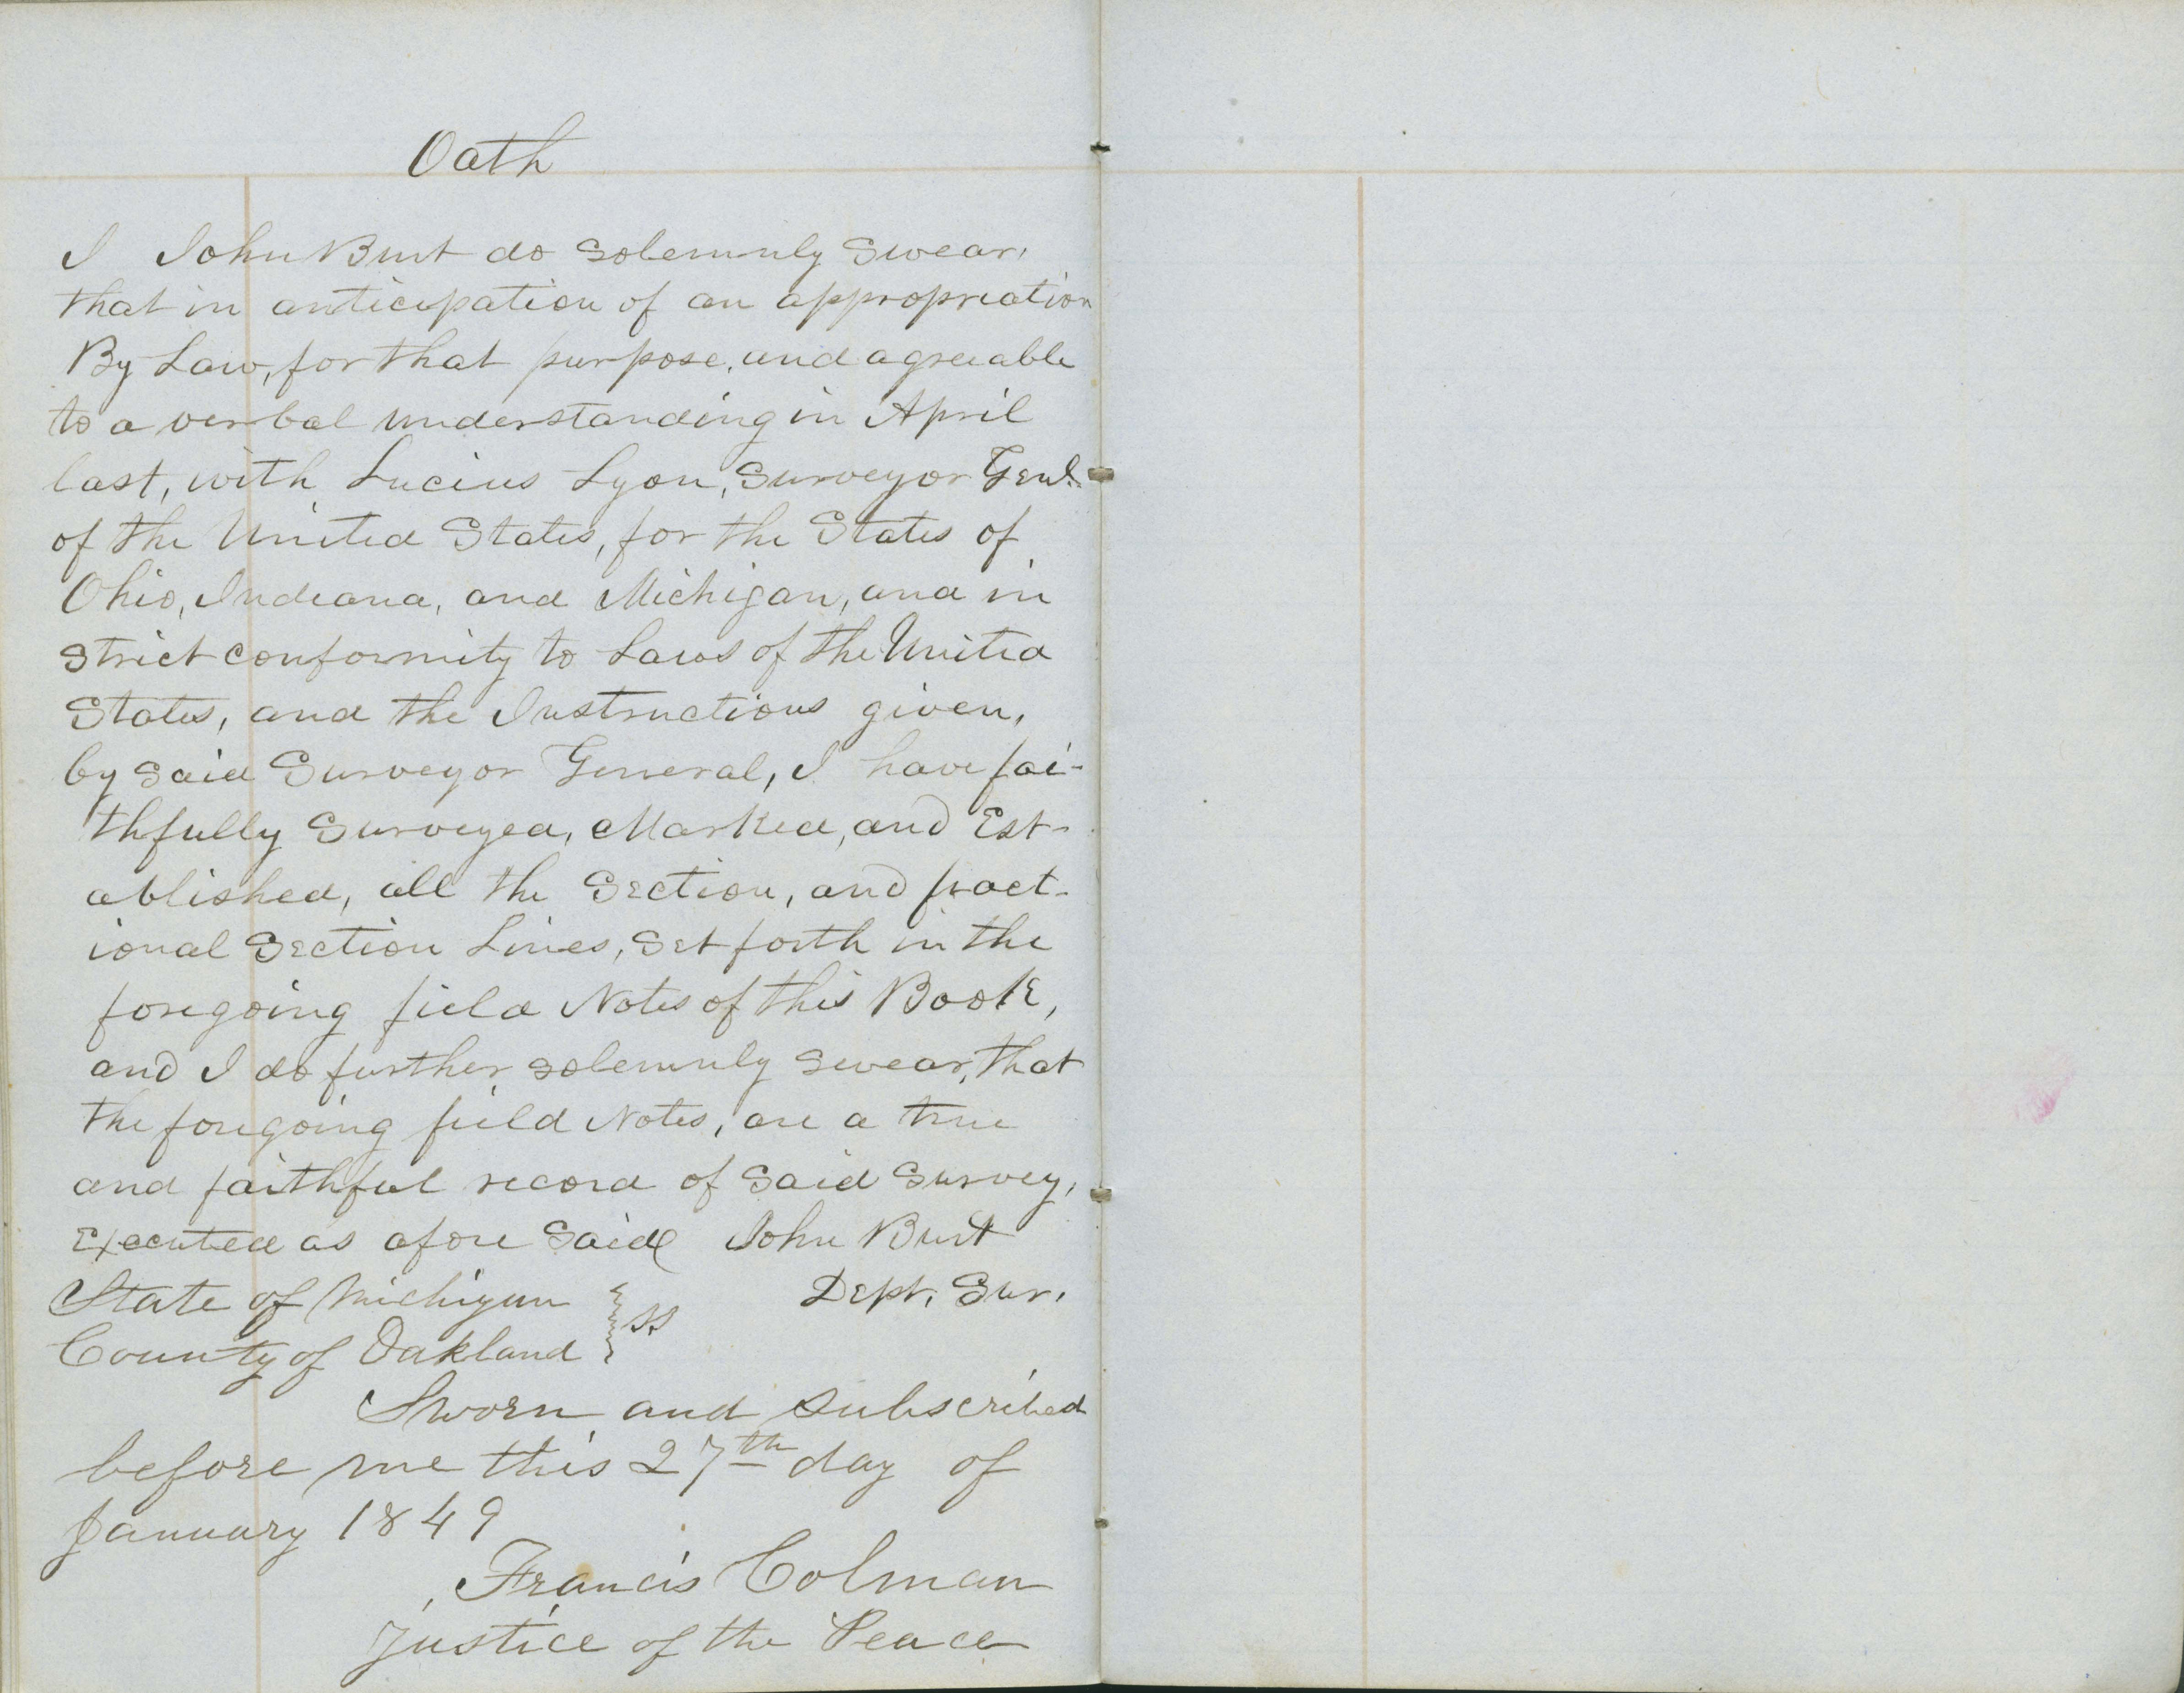 Oath
I John Burt do solemnly Swear,
that in anticipation of an appropriation
By Law, for that purpose, and agreeable
to a verbal understanding in April
last, with Lucius Lyon, Surveyor Genl.
of the United States, for the States of
Ohio, Indiana, and Michigan, and in
Strict conformity to Laws of the United
States, and the Instructions given,
by Said Surveyor General, I have fai-
thfully Surveyed, Marked, and Est-
ablished, all the Section, and fract-
ional Section Lines, Set forth in the
foregoing field Notes of this Book,
and I do further solemnly swear, that
the foregoing field Notes, are a true
and faithful record of Said Survey,
Executed as afore Said John Burt
Dept. Sur.
State of Michigan
County of Oakland } SS
Sworn and subscribed
before me this 27th day of
January 1849
Francis Colman
Justice of the Peace